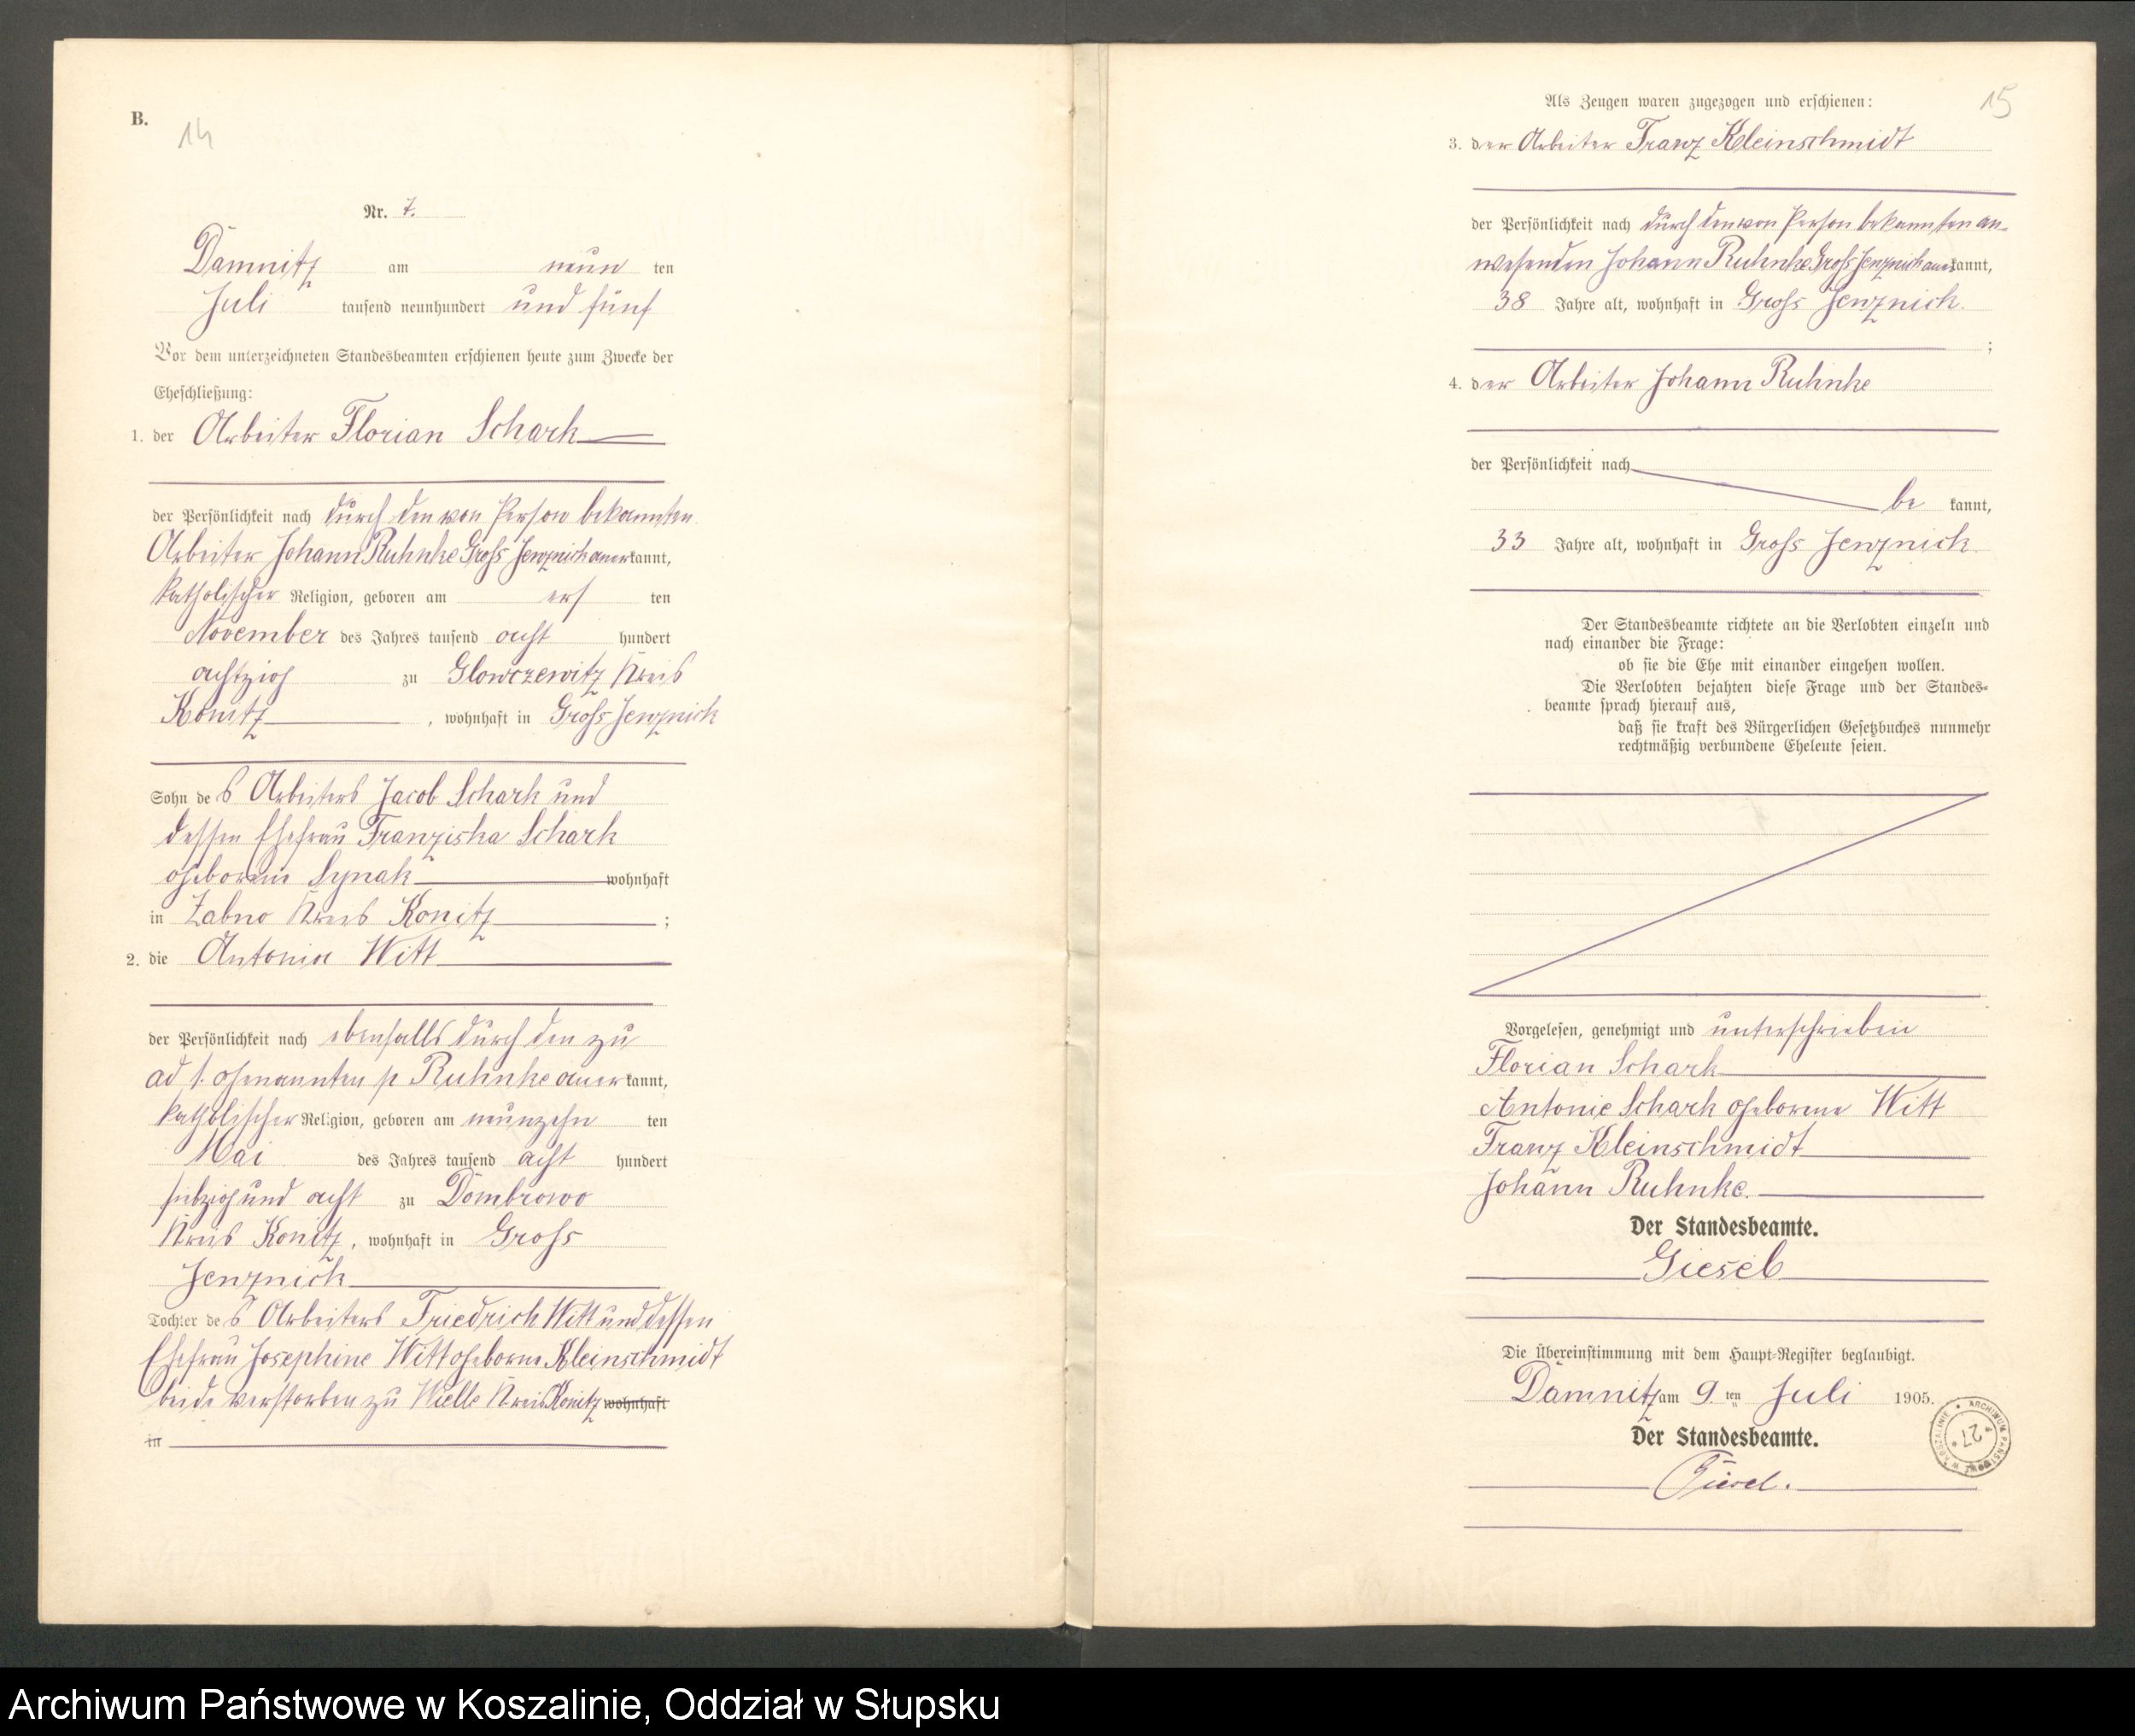 B.
14
Nr. 7.
Damnitz am neun ten
Juli tausend neunhundert und fünf
Vor dem unterzeichneten Standesbeamten erschienen heute zum Zwecke der
Eheschließung:
1. der Arbeiter Florian Schark
der Persönlichkeit nach durch den von Person bekannten
Arbeiter Johann Ruhnke Gross Jenznick anerkannt,
katholischer Religion, geboren am ers ten
November des Jahres tausend acht hundert
achtzig zu Glowczewitz Kreis
Konitz, wohnhaft in Gross Jenznick
Sohn des Arbeiters Jacob Schark und
dessen Ehefrau Franziska Schark
geborene Synak wohnhaft
in Zabno Kreis Konitz;
2. die Antonie Witt
der Persönlichkeit nach ebenfalls durch den zu
ad 1. genannten p Ruhnke anerkannt,
katholischer Religion, geboren am neunzehn ten
Mai des Jahres tausend acht hundert
siebzig und acht zu Dombrowo
Kreis Konitz, wohnhaft in Gross
Jenznick
Tochter des Arbeiters Friedrich Witt und dessen
Ehefrau Josephine Witt geborne Kleinschmidt
beide verstorben zu Wielle Kreis Konitz wohnhaft
in
Als Zeugen waren zugezogen und erschienen:
15
3. der Arbeiter Franz Kleinschmidt
der Persönlichkeit nach durch den von Person bekannten an-
wesenden Johann Ruhnke Gross Jenznick anerkannt,
38 Jahre alt, wohnhaft in Gross Jenznick.
;
4. der Arbeiter Johann Ruhnke
der Persönlichkeit nach
be kannt,
33 Jahre alt, wohnhaft in Gross Jenznick.
Der Standesbeamte richtete an die Verlobten einzeln und
nach einander die Frage:
ob sie die Ehe mit einander eingehen wollen.
Die Verlobten bejahten diese Frage und der Standes-
beamte sprach hierauf aus,
daß sie kraft des Bürgerlichen Gesetzbuches nunmehr
rechtmäßig verbundene Eheleute seien.
Vorgelesen, genehmigt und unterschrieben
Florian Schark
Antonie Schark geborene Witt
Franz Kleinschmidt
Johann Ruhnke.
Der Standesbeamte.
Giesel
Die Übereinstimmung mit dem Haupt-Register beglaubigt.
Damnitz am 9 ten Juli 1905.
Der Standesbeamte.
Giesel.
ARCHIWUM PAŃSTWOWE W KOSZALINIE
27
Archiwum Państwowe w Koszalinie, Oddział w Słupsku